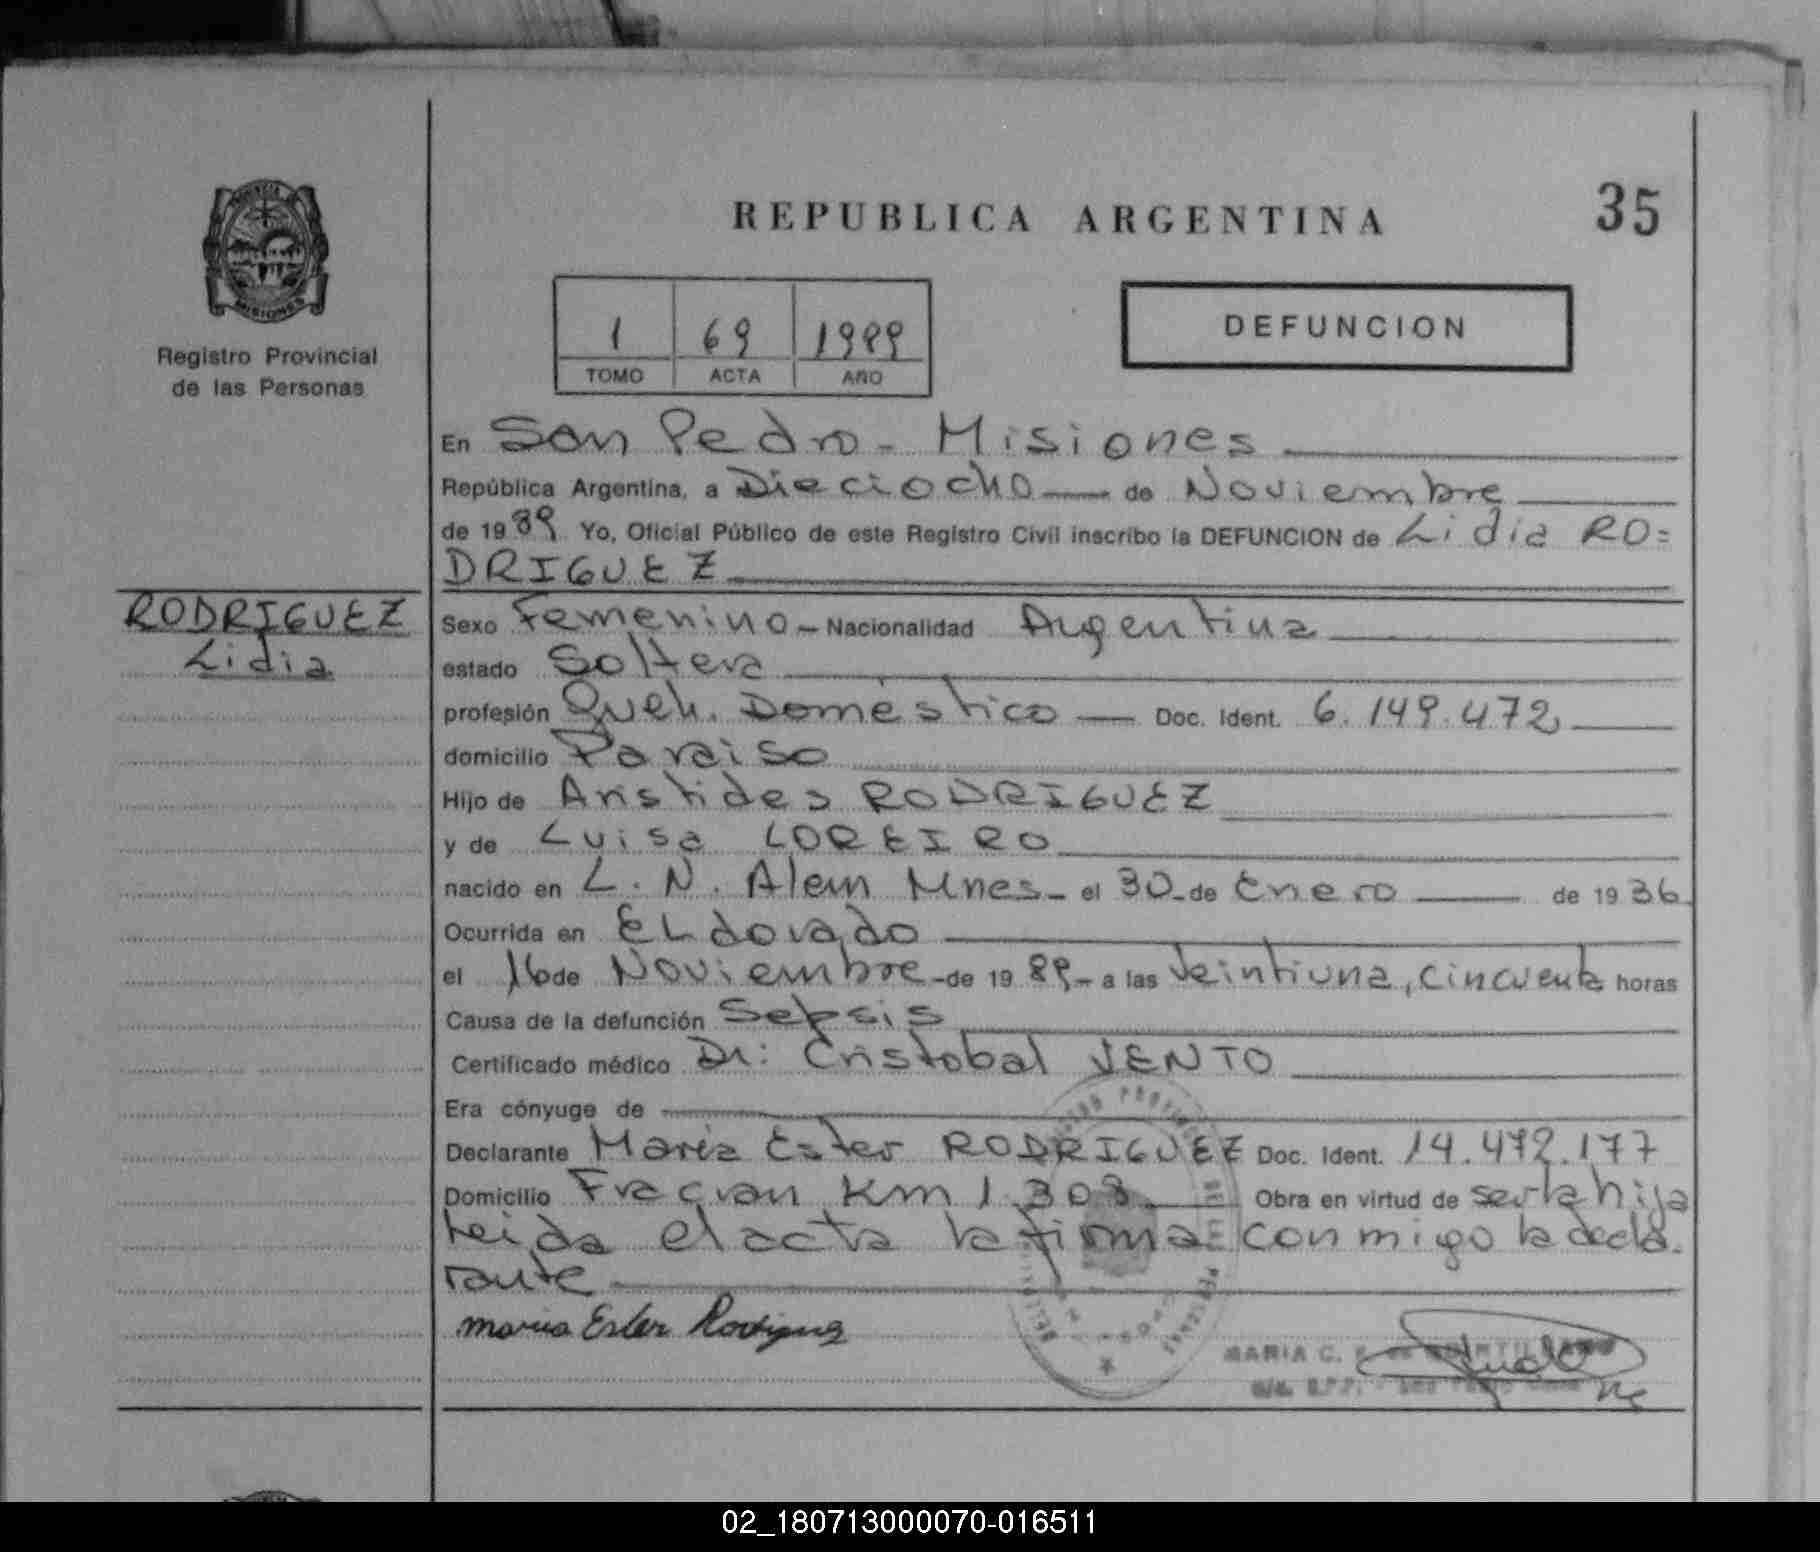 REPUBLICA ARGENTINA
35
PROVINCIA
MISIONES
Registro Provincial
de las Personas
1 69 1989
TOMO ACTA AÑO
DEFUNCION
En San Pedro - Misiones
República Argentina, a Dieciocho de Noviembre
de 1989 Yo, Oficial Público de este Registro Civil inscribo la DEFUNCION de Lidia RO=
DRIGUEZ
RODRIGUEZ
Lidia
Sexo Femenino - Nacionalidad Argentina
estado Soltera
profesión Queh. Doméstico Doc. Ident. 6.149.472
domicilio Paraiso
Hijo de Aristides RODRIGUEZ
y de Luisa LOREIRO
nacido en L. N. Alem Mnes - el 30 - de Enero de 1936
Ocurrida en ELdorado
el 16 de Noviembre - de 1989 - a las Veintiuna, cincuenta horas
Causa de la defunción Sepsis
Certificado médico Dr: Cristobal VENTO
Era cónyuge de
Declarante María Ester RODRIGUEZ Doc. Ident. 14.472.177
Domicilio Fracran Km 1.303 Obra en virtud de ser la hija
Leida el acta la firma conmigo la decla-
rante
Maria Ester Rodriguez
MARIA C.
02_180713000070-016511